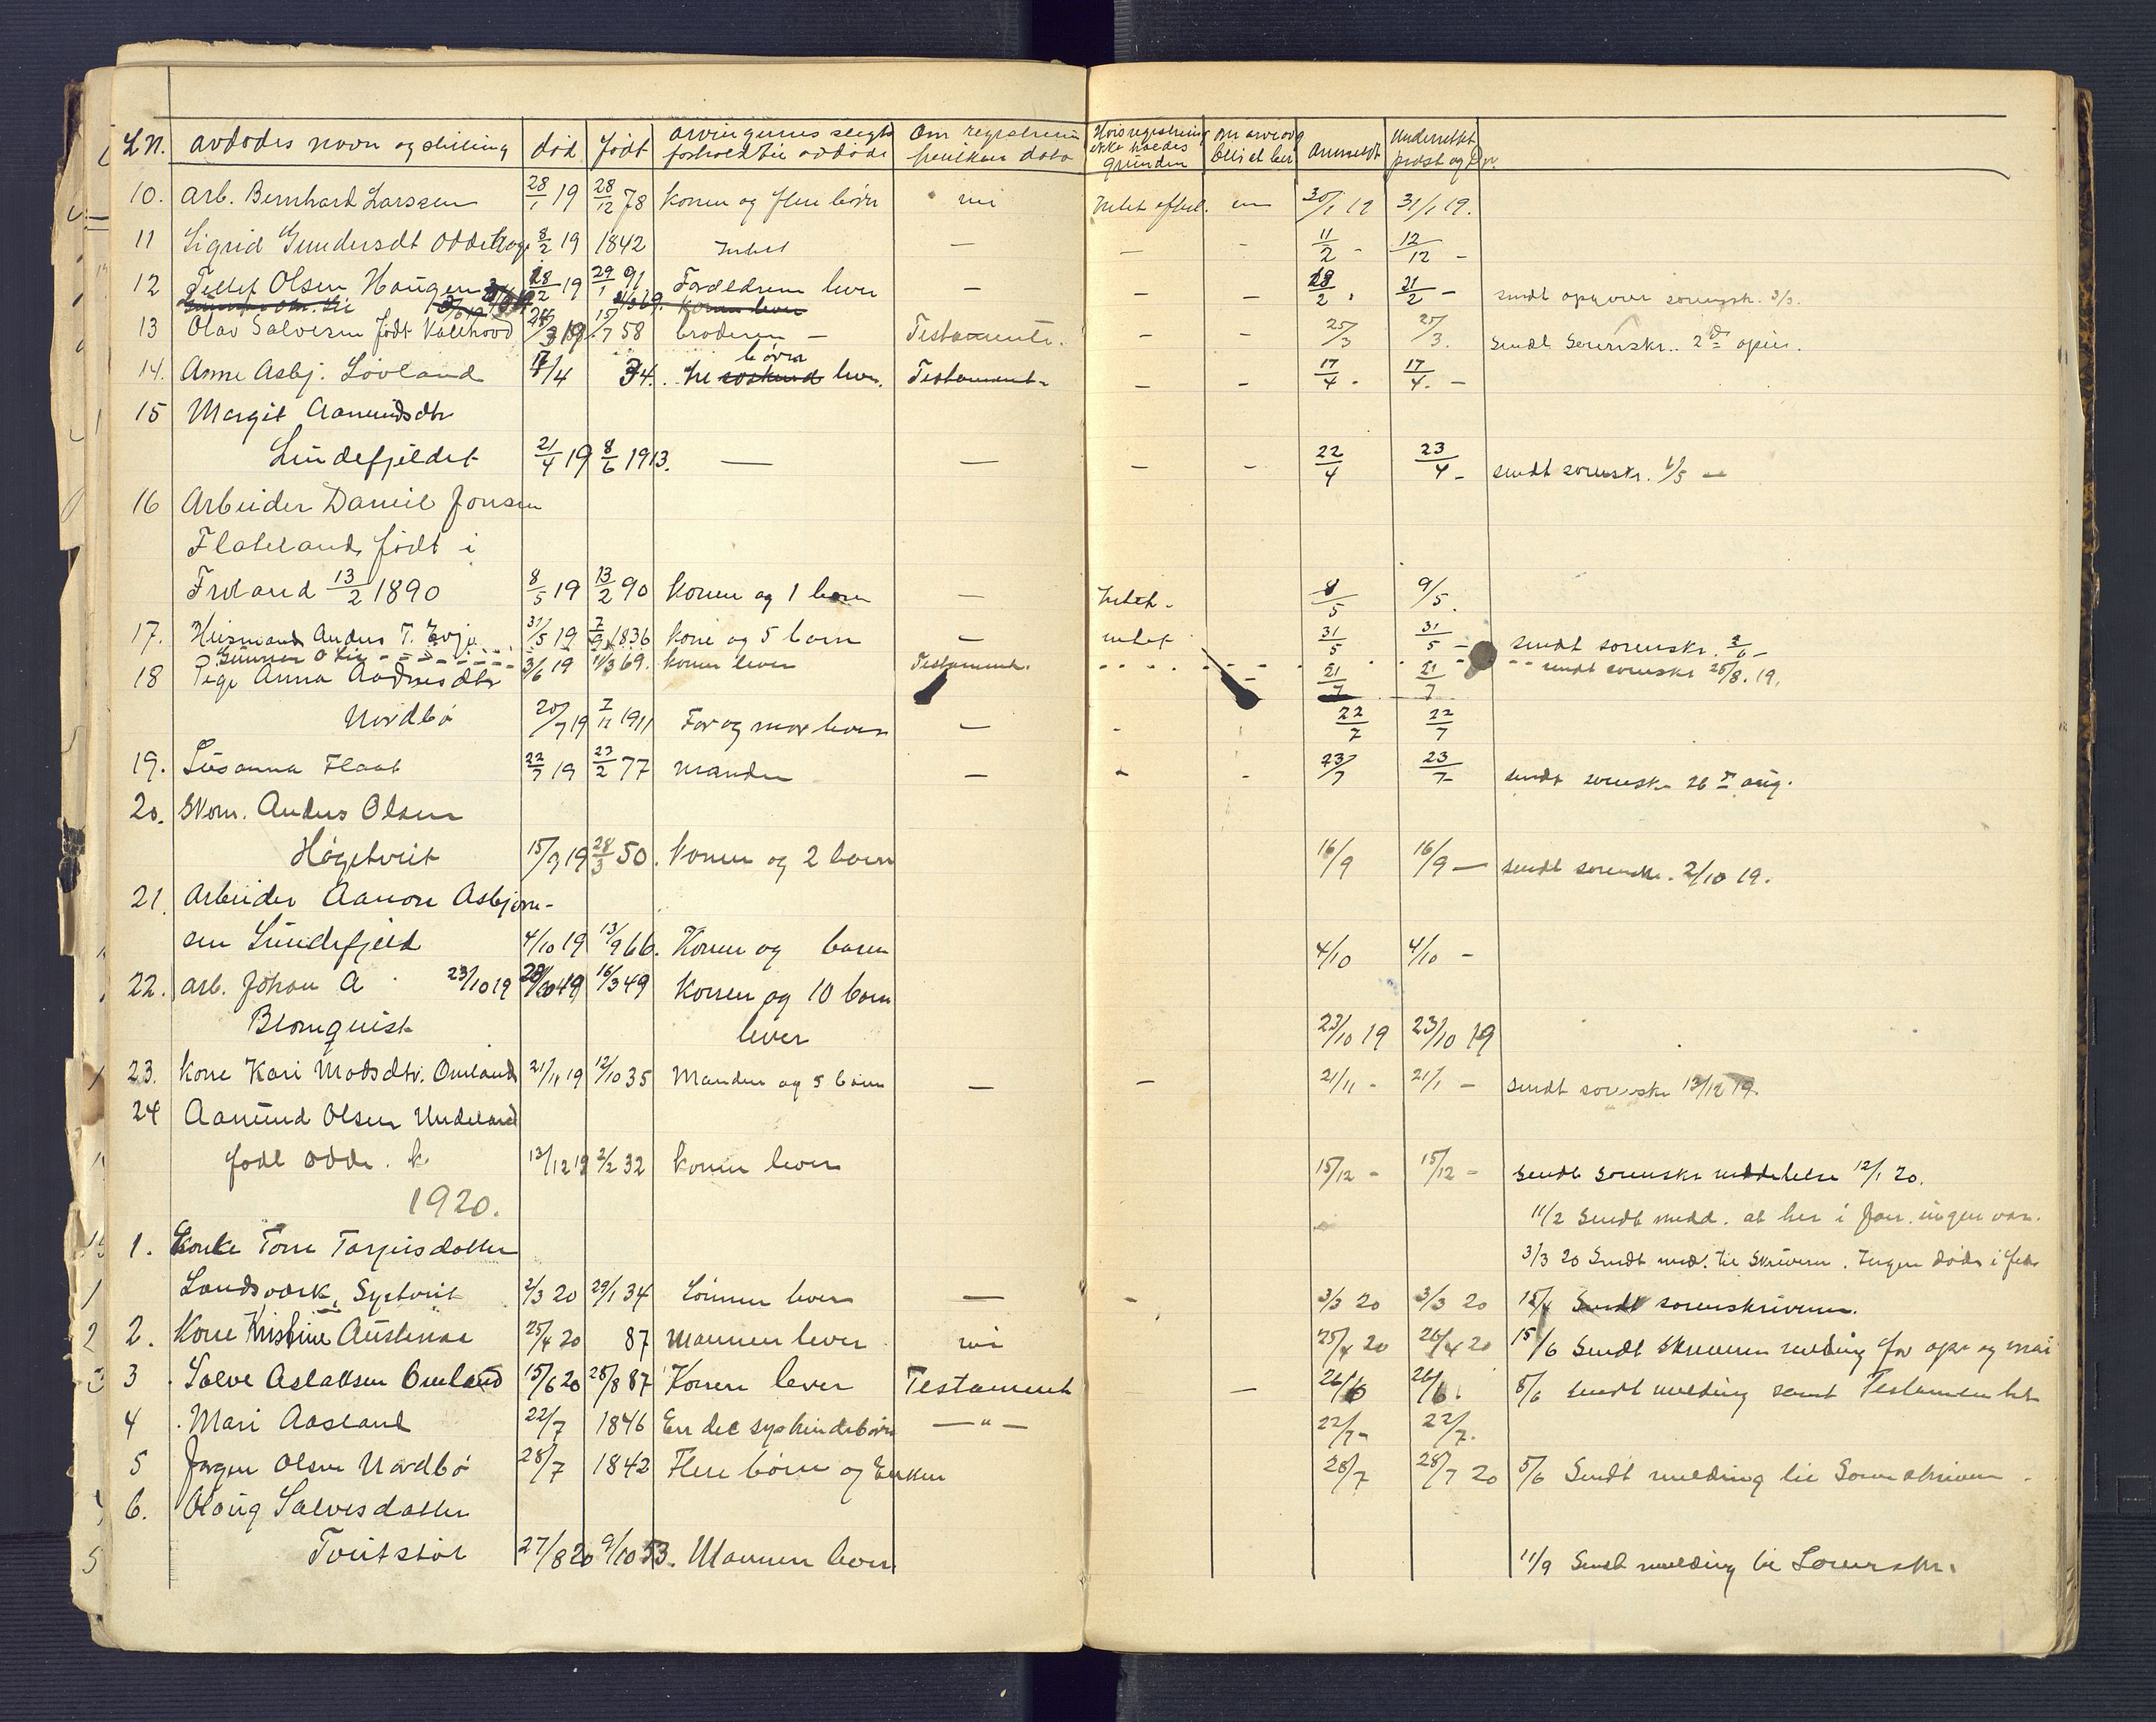 L.N. avdødes navn og stilling død født arvingernes slegts forhold til avdøde Om registrering hvilken dato Hvis registrering ikke holdes grunden Anmeldt Underrettet
10. Arb. Bernhard Larssen 28/1 19 28/12 78 konen og flere børn nei Intet 30/1 19 31/1 19.
11 Sigrid Gundersdt 8/2 19 1842 Intet — — - 11/2 - 12/12 -
12 Tellef Olsen Haugen 19 29/1 91 Forældrene lever - - - 21/2 - sendt 3/3.
13 Olav Salvesen født Valehovd 15/7 58 broderen — Testamente. - - 25/3 25/3. sendt sorenskr. 2 april.
14. Anne Asbj. Løvland 17/4 34. børn lever. Testament - - 17/4 - 17/4 -
15 Margit Aamundsdtr
Lindefjeldet 21/4 19 8/6 1913. — — - - 22/4 23/4 - sendt sorenskr. 6/5 —
16 Arbeider Daniel Jonsen
Flateland født i
13/2 1890 8/5 19 13/2 90 konen og 1 barn — Intet. 8/5 9/5.
17. Husmand Anders T. Evje 31/5 19 1836 kone og 5 barn — intet 31/5 31/5 - sendt sorenskr.
3/6 19 11/3 69. konen lever Testament. sendt sorenskr 25/8. 19.
18 Pige Anna Aadnesdtr 21/7 21/7
Nordbø 20/7 19 7/11 1911 Far og mor lever — - 22/7 22/7
19. Susanna Flaat 22/7 19 77 manden — - - 23/7 23/7 sendt sorenskr 26 aug.
20. Skom. Anders Olsen
Høgetveit 15/9 19 28/3 50. konen og 2 barn 16/9 16/9 — sendt sorenskr. 2/10 19.
21. Arbeider Aanon Asbjørn-
sen Lindefjeld 4/10 19 13/9 66. Konen og barn 4/10 4/10 -
22. arb. Johan A 23/10 19 16/3 49 konen og 10 barn
Blomquist lever 23/10 19 23/10 19
23. kone Kari Madsdtr. Omland 21/11 19 12/10 35 Manden og 5 barn — — 21/11 - 21/1 - sendt sorenskr 13/12 19.
24 Aamund Olsen Undeland
født Odde. k 2/2 32 konen lever 15/12 - 15/12 - sendt sorenskr meddelelse 12/1 20.
1920. 11/2 sendt medd. at her i Jan. ingen var.
1. Enke Tone Tarjeisdatter 3/3 20 Sendt med. til Skriveren. Ingen døde i feb.
Landsværk, 2/3 20 29/1 34 Sønnen lever — - 3/3 20 3/3 20 sorenskriveren.
2. Kone Kristine 25/4 20 87 Mannen lever nei 25/4 20 26/4 20 15/6 Sendt skriveren melding for apr og mai
3 Salve Aslaksen Omland 15/6 20 28/8 87 Konen lever Testament — 26/6 26/6 8/6 sendt melding samt Testamentet
4 Mari Aasland 22/7 1846 En del syskindebørn — " — 22/7 - 22/7.
5 Jørgen Olsen Nordbø 28/7 1842 Flere børn og Enken 28/7 28/7 20 5/6 Sendt melding til Sorenskriveren.
6. Olaug Salvesdatter
Tveitstøl 27/8 20 9/10 53. Mannen lever 11/9 Sendt melding til Sorenskr.